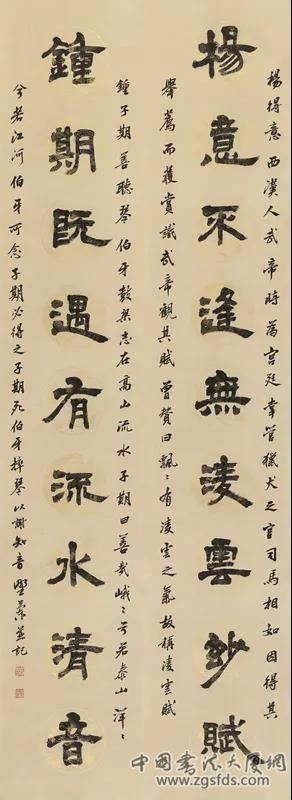 楊得意西漢人武帝時為宮廷掌管獵犬之官司馬相如因得其
楊意不逢無凌雲妙賦
舉薦而獲賞識武帝觀其賦曾贊曰飄飄有凌雲之氣故稱凌雲賦
鍾子期善聽琴伯牙鼓琴志在高山流水子期曰善哉峨峨兮若泰山洋洋
鍾期既遇有流水清音
兮若江河伯牙所念子期必得之子期死伯牙摔琴以謝知音
並記
中国书法大厦网
www.zgsfds.com